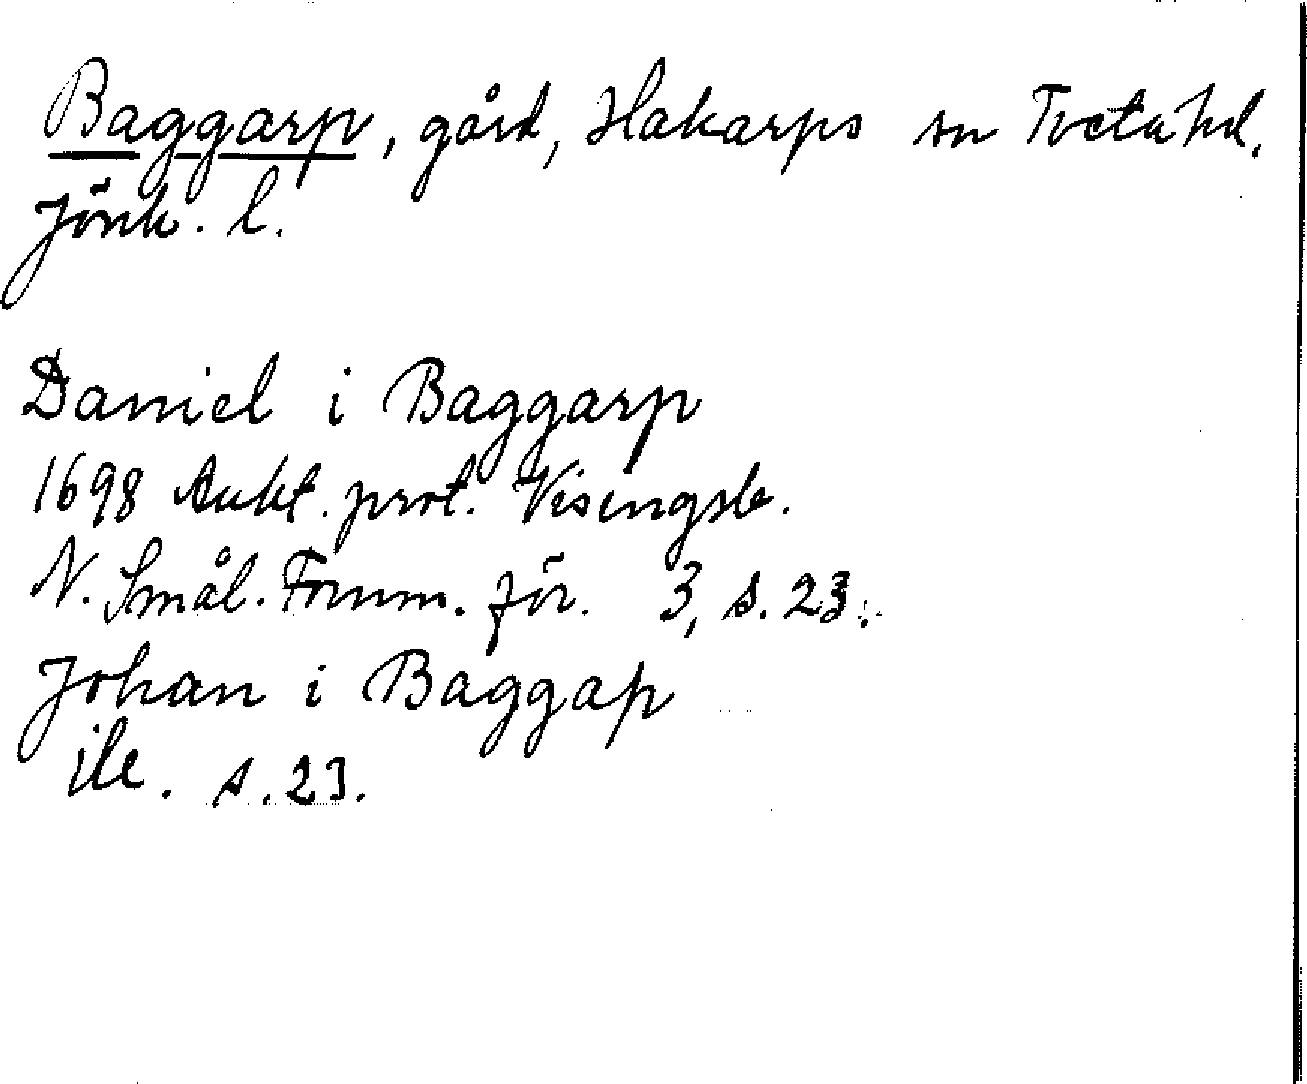 Baggarp, gård, Hakarps sn Tveta hd.
Jönk. l.
Daniel i Baggarp
1698 Aukt. prot. Visingsb.
N. Smål. Fornm. för. 3, s. 23.
Johan i Baggap
ib. s. 23.